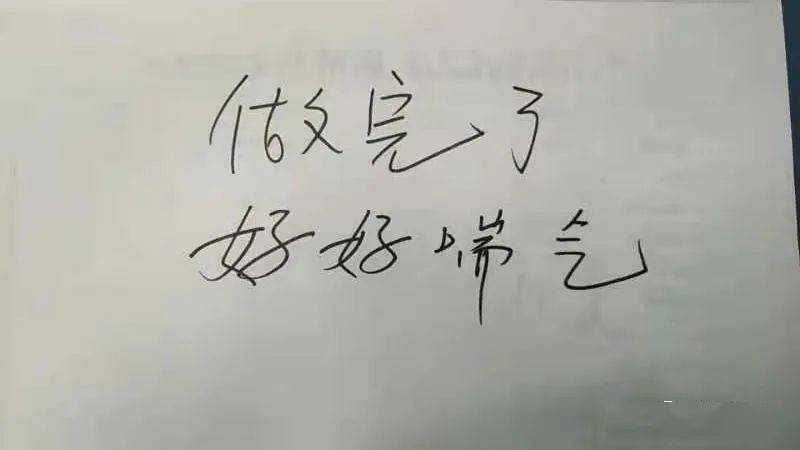 做完了
好好喘气